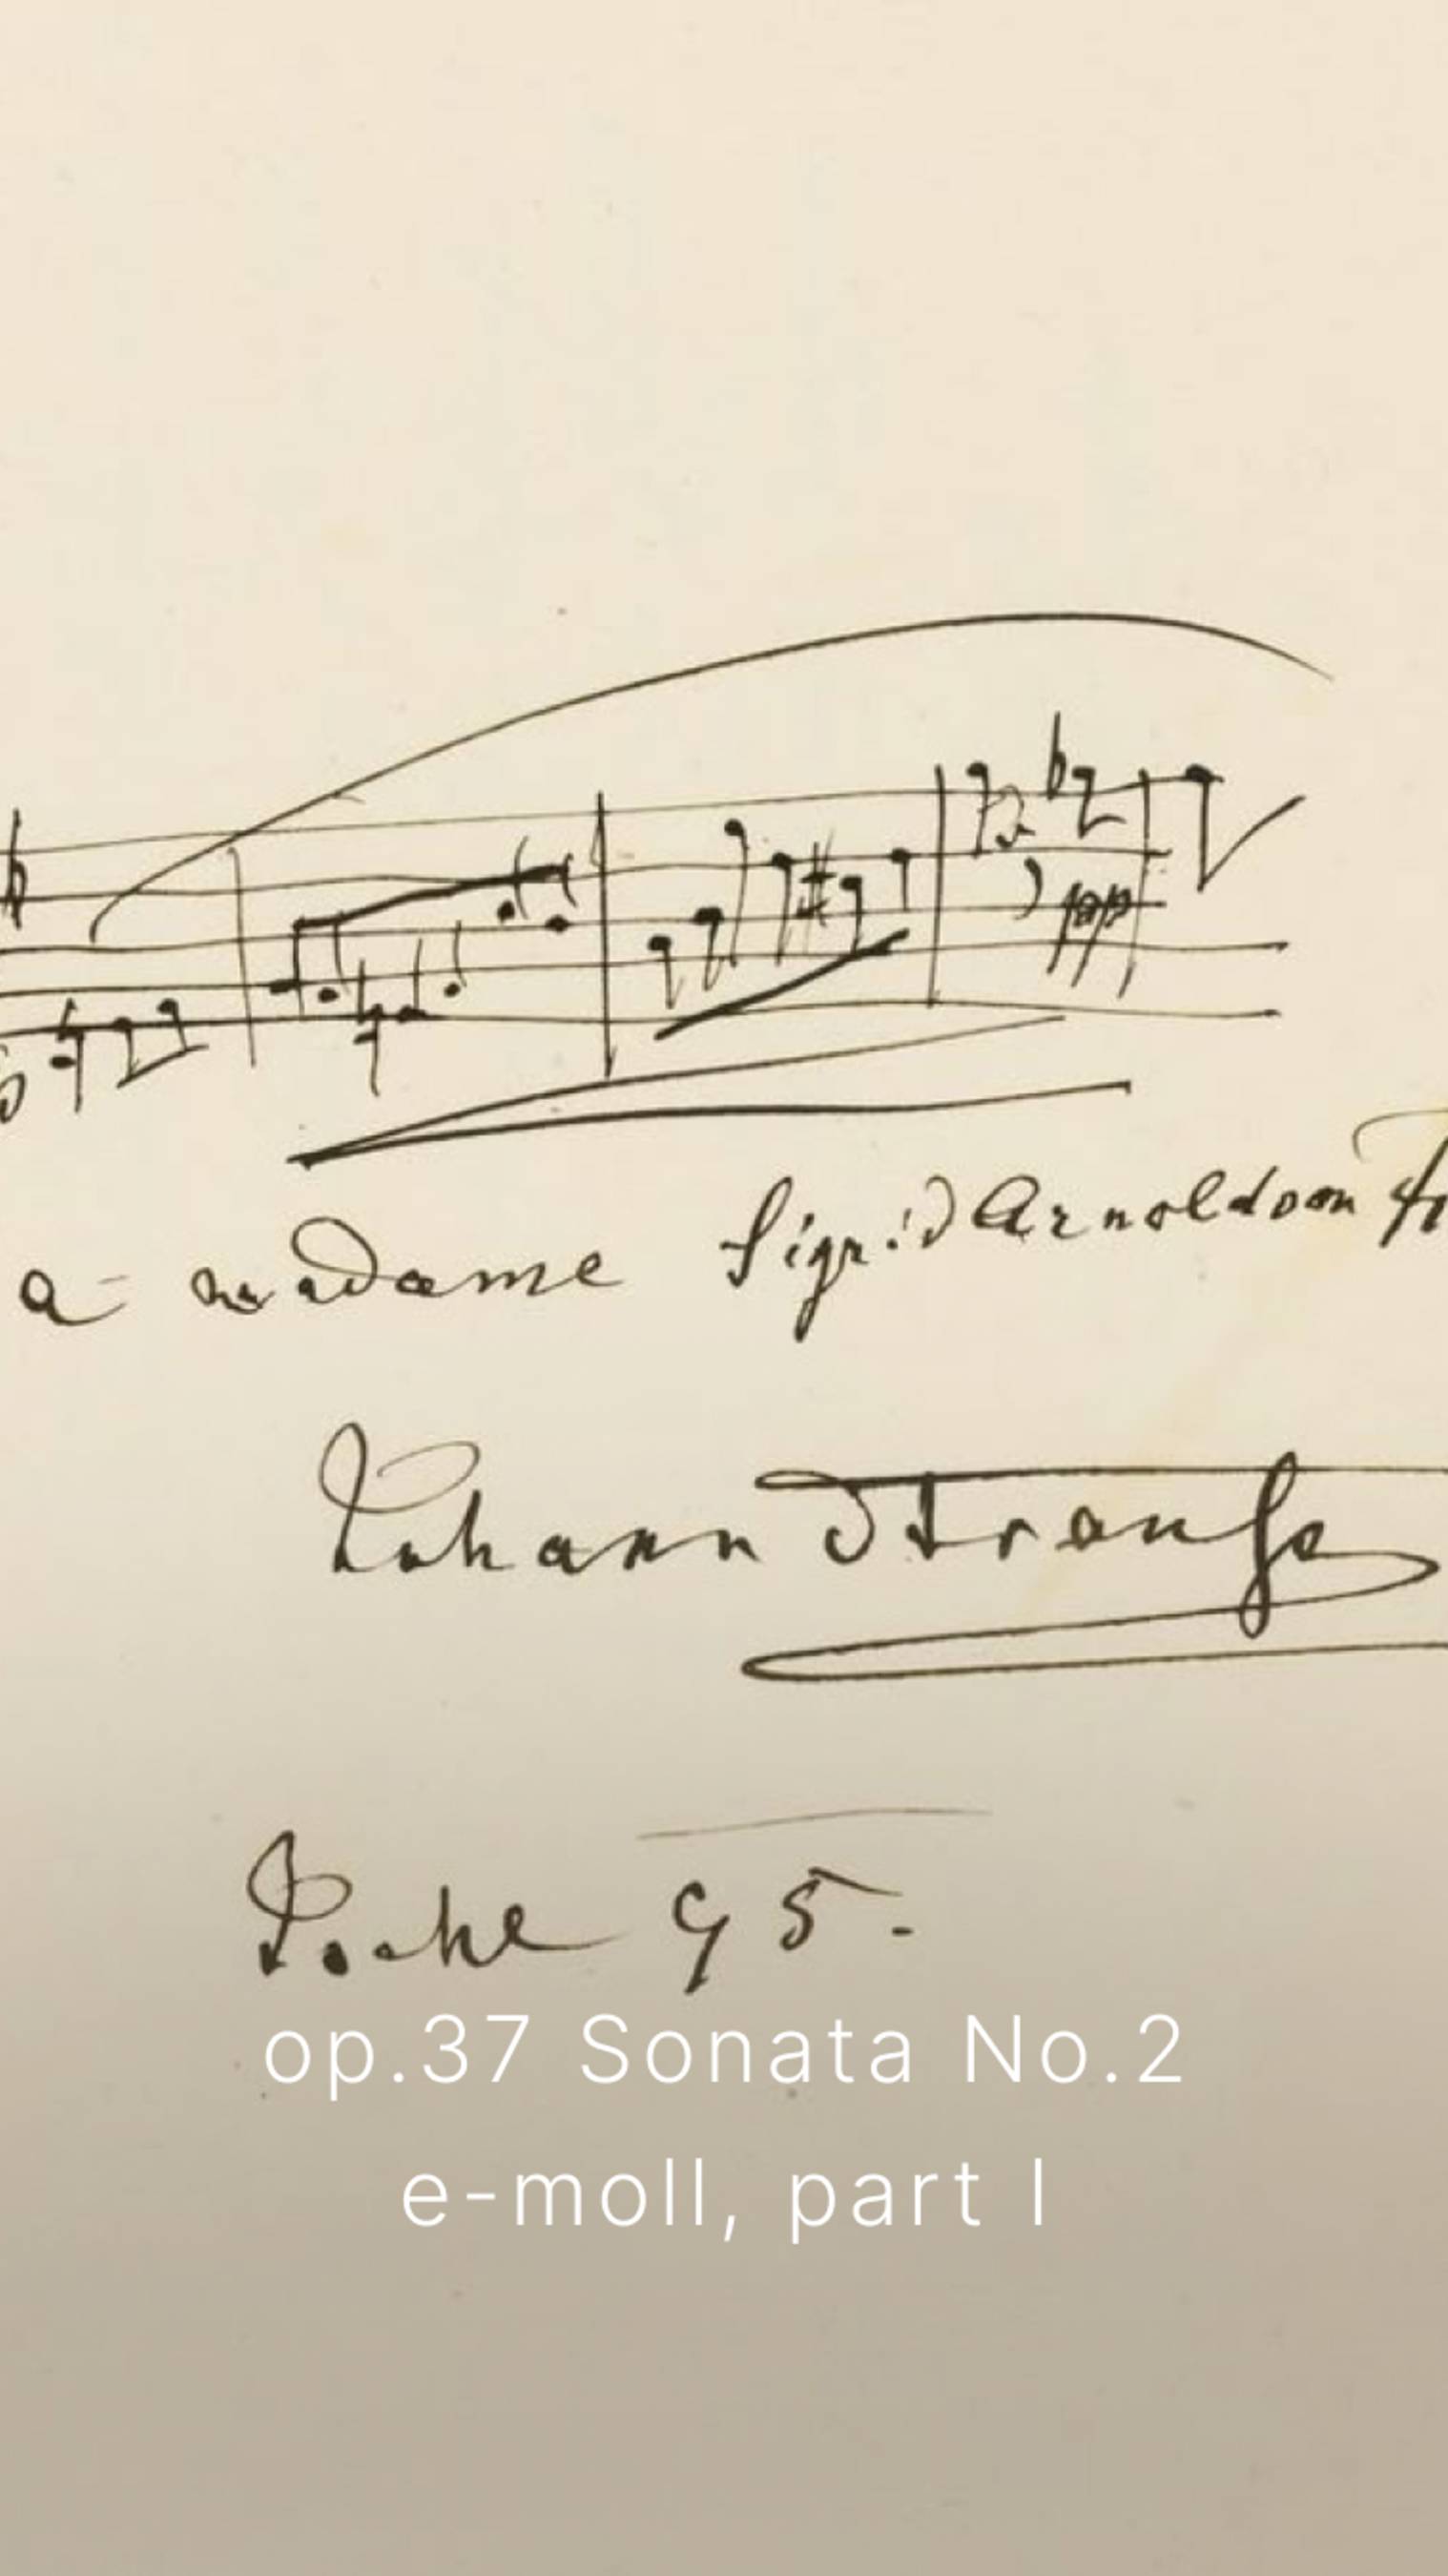 ppp
a madame Sigrid Arnoldson
Johann Strauss
Ischl 95.
op.37 Sonata No.2
e-moll, part I